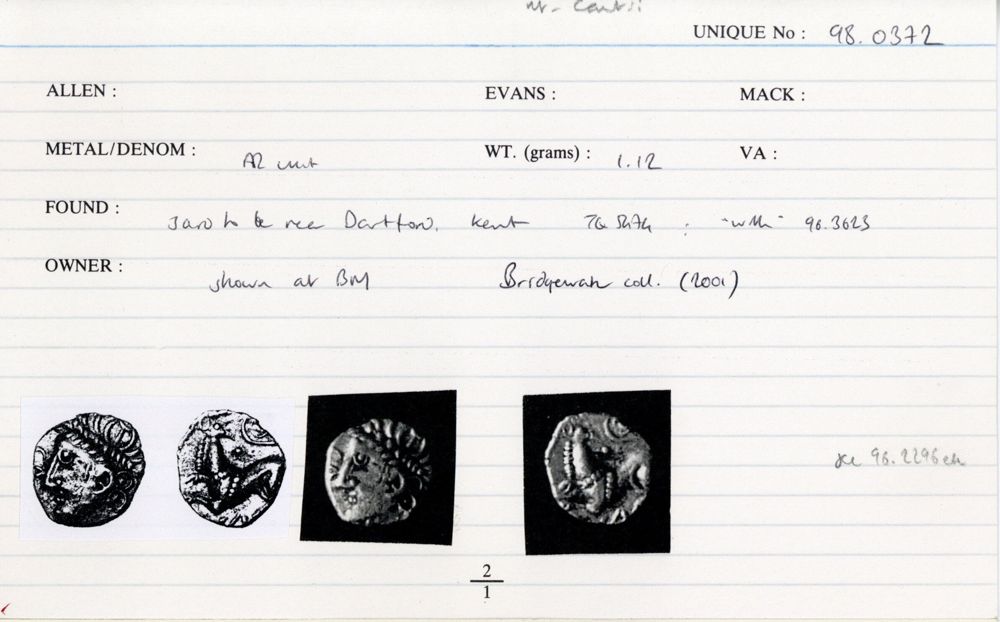 UNIQUE No : 98.0372
ALLEN :
EVANS :
MACK :
METAL/DENOM : AR unit
WT. (grams) : 1.12
VA :
FOUND : said to be near Dartford, Kent : "with" 96.3623
OWNER : shown at BM Bridgewater coll. (2001)
96.2296
2
1